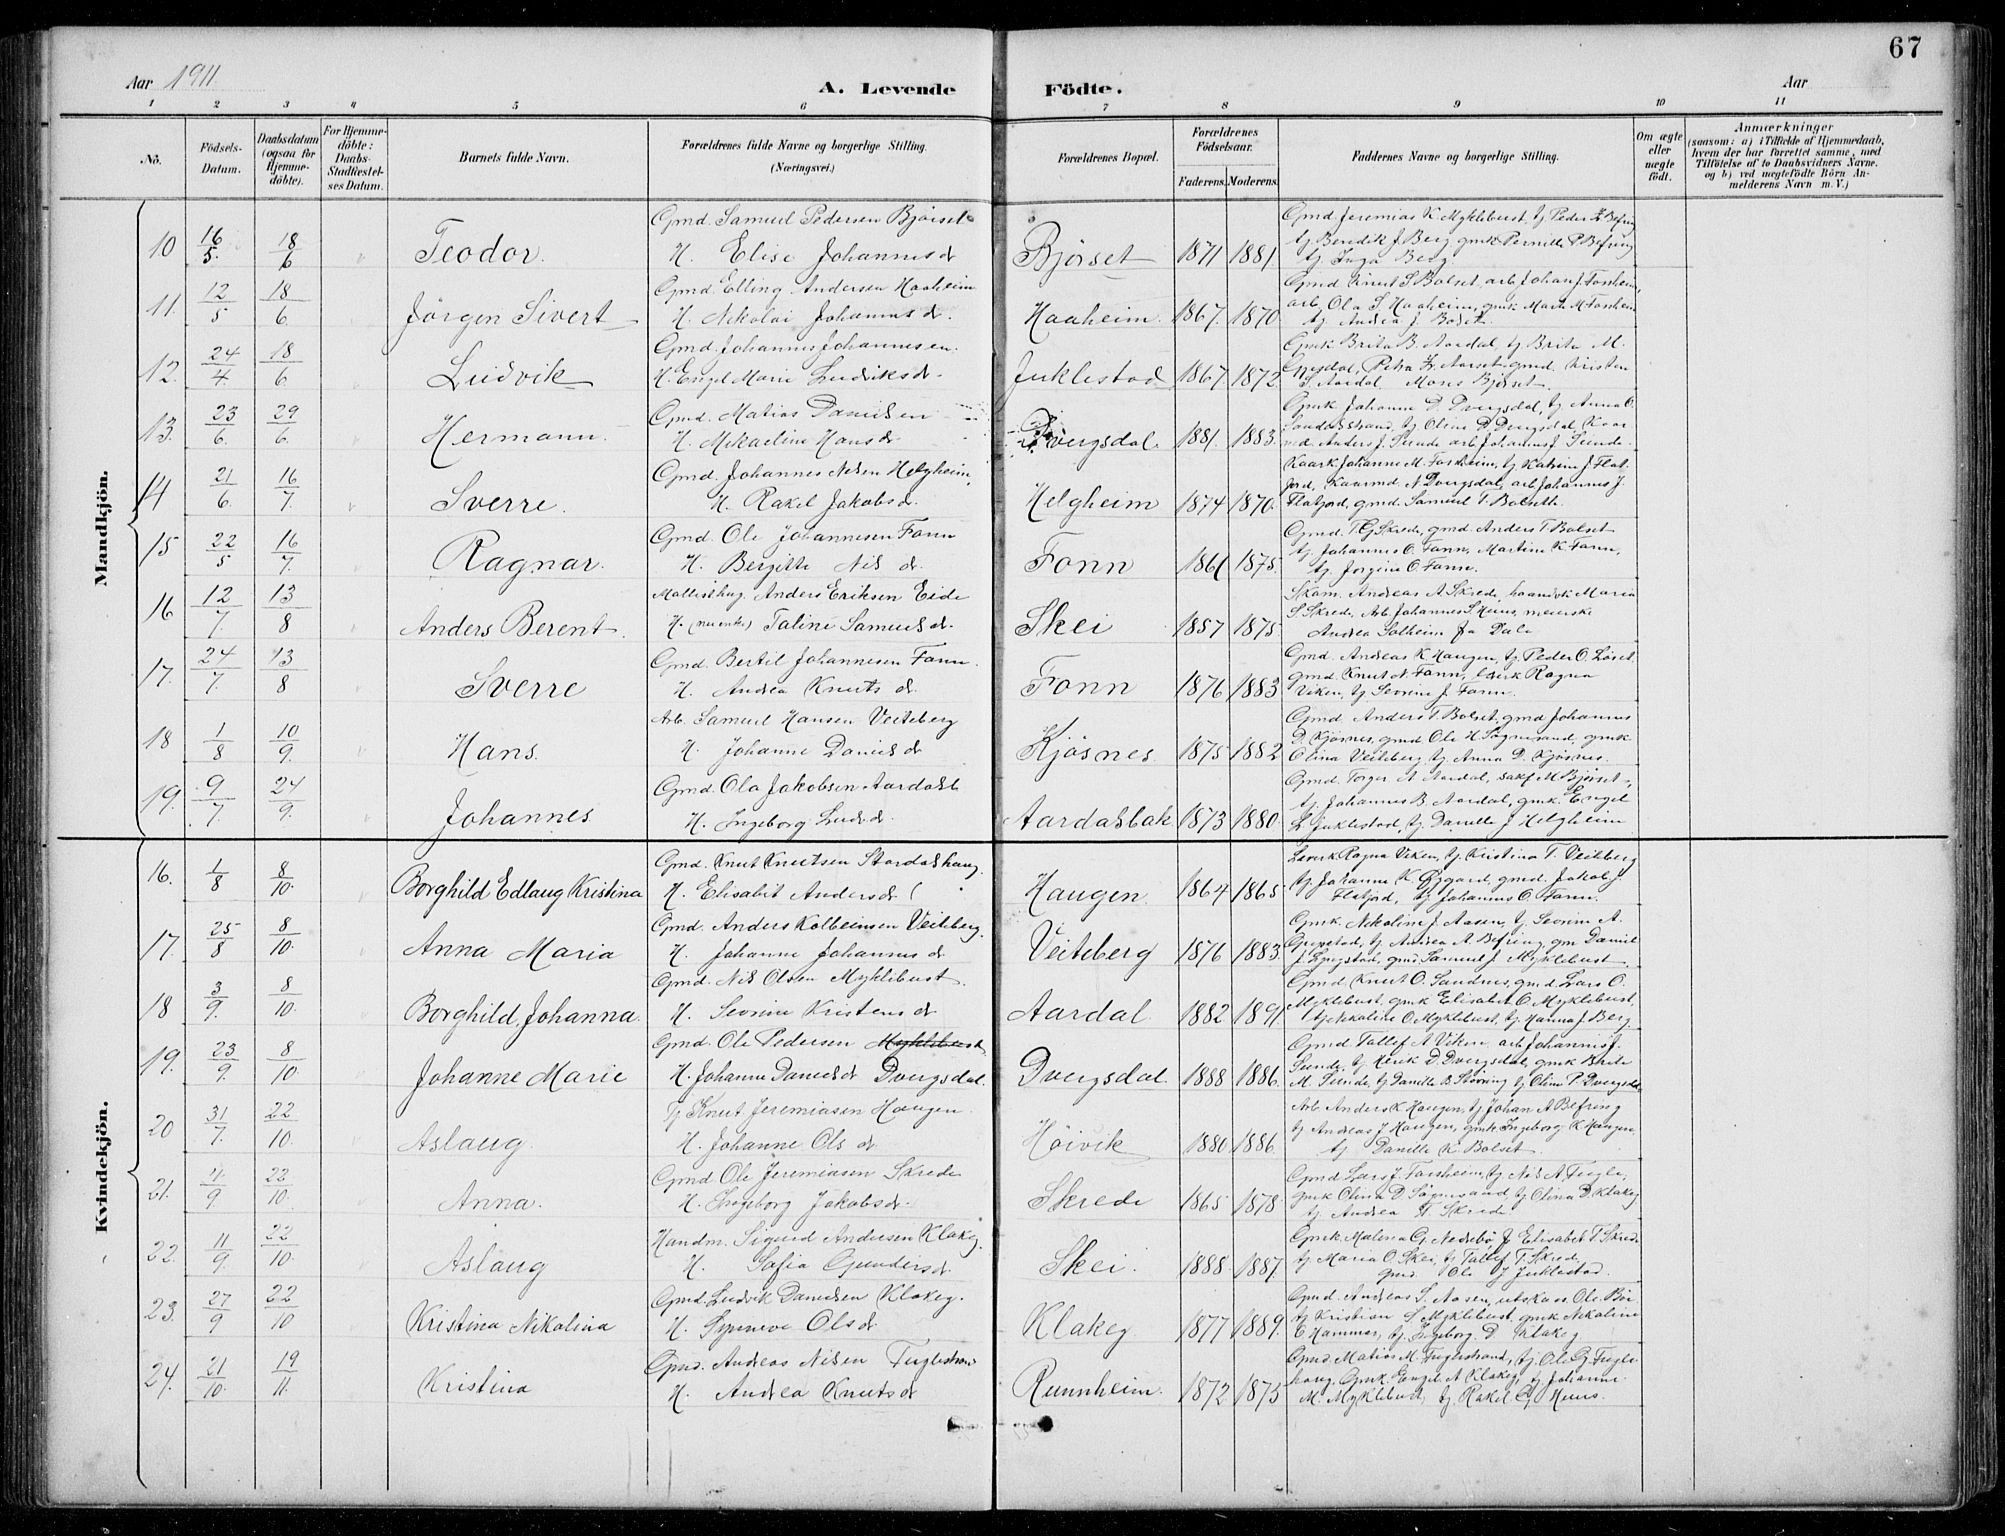 67
Aar 1911.
A. Levende Födte.
Aar
1 2 3 4 5 6 7 8 9 10 11
No.
Födsels-Datum.
Daabsdatum (ogsaa for Hjemme-döbte).
For Hjemme-döbte: Daabs-Stadfæstel-ses Datum.
Barnets fulde Navn.
Forældrenes fulde Navne og borgerlige Stilling.
(Næringsvei.)
Forældrenes Bopæl.
Forældrenes Födselsaar.
Faderens. Moderens.
Faddernes Navne og borgerlige Stilling.
Om ægte eller uægte födt.
Anmærkninger
(saasom: a) i Tilfælde af Hjemmedaab, hvem der har forrettet samme, med Tilföielse af to Daabsvidners Navne. og b) ved uægtefödte Börn An-melderens Navn m. V.)
Mandkjön.
10 16/5. 18/6 Teodor.
Gmd. Samuel Pedersen Bjørset
H. Elise Johannesd
Bjørset 1871 1881
Gmd. Jeremias K. Myklebust, tj. Peder K. Befring
tj. Bendik J. Berg, gmk. Pernille P. Befring
tj. Inga Berg.
11. 12/5 18/6. Jörgen Sivert
Gmd. Elling Andersen Haaheim
H. Nikolai Johannesd.
Haaheim. 1867. 1870.
Gmd. Knut S. Bolset, arb. Johan J. Forsheim,
arb. Ola S. Haaheim, gmk. Marte M. Forsheim
tj. Andrea J. Bolset.
12. 24/4 18/6. Ludvik
Gmd. Johannes Johannesen.
H. Engel Marie Ludviksd.
Juklestad 1867 1872
Gmk. Brita B. Aardal, tj. Brita M.
Petra Aarset, gmd. Kristen
S. Aardal Mons Bjørset.
13. 23/6. 29/6. Hermann.
Gmd. Matias Danielsen
H. Mikaeline Hansd.
Dvergsdal. 1881. 1883.
Gmk. Johanne D. Dvergsdal, tj. Anna O.
Sandalstrand, tj. Oline D. Dvergsdal, Kaar
md. Anders J. Sunde, arb. Johannes J. Sunde.
14 21/6. 16/7. Sverre.
Gmd. Johannes Nilsen Helgheim,
H. Rakel Jakobsd.
Helgheim 1874 1870.
Kaark. Johanne M. Forsheim, tj. Katrine J. Flat-
jord, Kaarmd. N. Dvergsdal, arb. Johannes J.
Flatjord, gmd. Samuel T. Bolseth.
15 22/5 16/7. Ragnar.
Gmd. Ole Johannesen Fonn
H. Bergitte Nilsd.
Fonn 1875.
Gmd. T. G. Skrede, gmd. Anders T. Bolset
tj. Johannes O. Fonn, Martine K. Fonn,
tj. Jorgine O. Fonn.
16 12/7. 13/8 Anders Berent.
Anders Eriksen Eide
H. (nu enke) Taline Samuelsd.
Skei 1857 1875.
Skom. Andreas A. Skrede, Maria
S. Skrede, Arb. Johannes S. Huus, meierske
Andrea Solheim fra Dale
17. 24/7. 13/8 Sverre
Gmd. Bertil Johannesen Fonn.
H. Andrea Knutsd.
Fonn 1876 1883
Gmd. Andreas K. Haugen, tj. Peder O. Løset,
gmd. Knut N. Fonn, Ragna
Viken, tj. Sevrine J. Fonn.
18 1/8 10/9. Hans.
Arb. Samuel Hansen Veiteberg
H. Johanne Danielsd
Kjøsnes. 1875 1882
Gmd. Anders T. Bolset, gmd. Johannes
D. Kjøsnes, gmd. Ole H. Søgnesand, gmk.
Olina Veiteberg, tj. Anna D. Kjøsnes.
19. 9/7. 24/9. Johannes.
Gmd. Ola Jakobsen Aardalsb.
H. Ingeborg Ludv.d.
Aardalsbak 1873 1880
Gmd. Torger A. Aardal, M. Bjørset,
tj. Johannes B. Aardal, gmk. Engel
L. Juklestad, tj. Danelle J. Helgheim
Kvindekjön.
16. 1/8 8/10. Borghild Edlaug Kristina
Gmd. Knut Knutsen Stardalshaug.
H. Elisabet Andersd.
Haugen. 1864 1865
Ragna Viken, tj. Kristina T. Veitberg
tj. Johanne K. gmd. Jakob J.
Flatjord, tj. Johannes O. Fonn.
17. 25/8 8/10. Anna Maria
Gmd. Anders Kolbeinsen Veiteberg.
H. Johanne Johannesd
Veiteberg 1876 1883.
Gmk. Nikoline J. Aasen, tj. Sevrine A.
tj. Andrea A. Befring, gm. Daniel
J. gmd. Samuel J. Myklebust.
18 3/9. 8/10. Borghild Johanna.
Gmd. Nils Olsen Myklebust.
H. Sevrine Kristensd
Aardal. 1882 1891
Gmd. Knut O. Sandnes, gmd. Lars O.
Myklebust, gmk. Elisabet O. Myklebust,
tj. Nikoline O. Myklebust, tj. Hanna J. Berg.
19. 23/9. 8/10. Johanne Marie
Gmd. Ole Pedersen Myklebust
H. Johanne Danielsd Dvergsdal.
Dvergsdal. 1888 1886.
Gmd. Tollef A. Viken, arb. Johannes J.
Sunde, tj. D. Dvergsdal, gmk. Brite
M. Sunde, tj. Danelle B. tj. Oline P. Dvergsdal
20 31/7. 22/10. Aslaug
Tj. Knut Jeremiasen Haugen.
H. Johanne Olsd
Höivik 1880 1886.
Arb. Anders K. Haugen, tj. Johan A. Befring
tj. Andreas J. Haugen, gmk. Ingeborg K. Haugen.
tj. Danelle K. Bolset.
21. 4/9. 22/10. Anna.
Gmd. Ole Jeremiasen Skrede
H. Ingeborg Jakobsd.
Skrede 1865 1878
Gmd. Lars J. Forsheim, tj. Nils A. Fugle,
gmk. Olina D. Søgnesand, tj. Olina D. Klakeg
tj. Andrea T. Skrede
22. 11/9. 22/10. Aslaug
Handm. Sigurd Andersen Klakeg.
H. Sofia Gundersd.
Skei. 1888 1887.
Gmk. Malena G. Nedrebø, J. Elisabet T. Skrede
tj. Maria O. Skei, tj. Tallef T. Skrede,
gmd. Ole J. Juklestad.
23. 27/9 22/10 Kristina Nikolina
Gmd. Ludvik Danielsen Klakeg.
H. Synneve Olsd.
Klakeg 1877 1889.
Gmd. Andreas S. Aasen, Ole
tj. Kristian S. Myklebust, gmk. Nikoline
E. Hammer, tj. Ingeborg D. Klakeg
24. 21/10. 19/11. Kristina
Gmd. Andreas Nilsen Fuglestrand
H. Andrea Knutsd
Runnheim. 1872 1875
Gmd. Matias M. Fuglestrand, tj. Ole G. Fugle-
haug, Gmk. Engel A. Klakeg, tj. Johanne
M. Myklebust, tj. Rakel G. Huus.